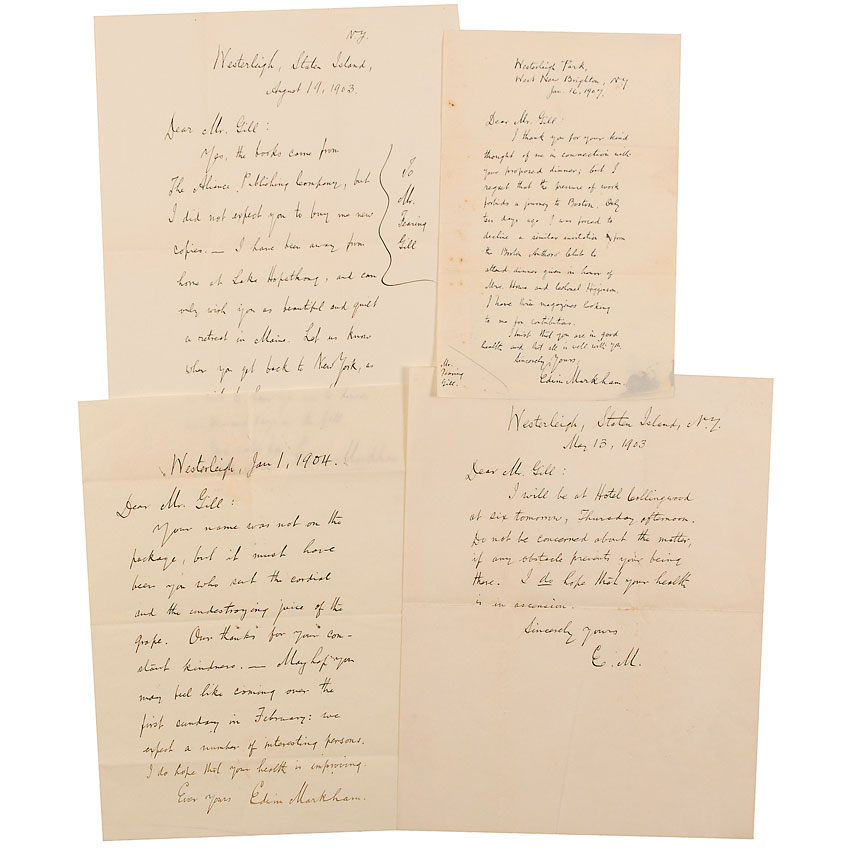 N.Y.
Westerleigh, Staten Island,
August 19, 1903.
Dear Mr. Gill:
Yes, the books came from
The Alliance Publishing Company, but
I did not expect you to buy me new
copies. — I have been away from
home at Lake Hopatkong, and can
only wish you as beautiful and quiet
a retreat in Maine. Let us know
when you get back to New York, as
To
Mr.
Fearing
Gill
Westerleigh Park,
West New Brighton, N.Y.
Jan. 16, 1907.
Dear Mr. Gill:
I thank you for your kind
thought of me in connection with
your proposed dinner; but I
regret that the pressure of work
forbids a journey to Boston. Only
ten days ago I was forced to
decline a similar invitation from
the Boston Authors' Club to
attend dinner given in honor of
Mrs. Howe and Colonel Higginson.
I have five magazines looking
to me for contributions.
I trust that you are in good
health and that all is well with you.
Sincerely Yours,
Edwin Markham.
Mr.
Fearing
Gill.
Westerleigh, Jan 1, 1904.
Dear Mr. Gill:
Your name was not on the
package, but it must have
been you who sent the cordial
and the undestroying juice of the
grape. Our thanks for your con-
stant kindness. — Mayhap you
may feel like coming over the
first sunday in February: we
expect a number of interesting persons.
I do hope that your health is improving.
Ever yours Edwin Markham.
Westerleigh, Staten Island, N.Y.
May 13, 1903
Dear Mr. Gill:
I will be at Hotel Collingwood
at six tomorrow, Thursday afternoon.
Do not be concerned about the matter,
if any obstacle prevents your being
there. I do hope that your health
is in ascension.
Sincerely yours
E. M.